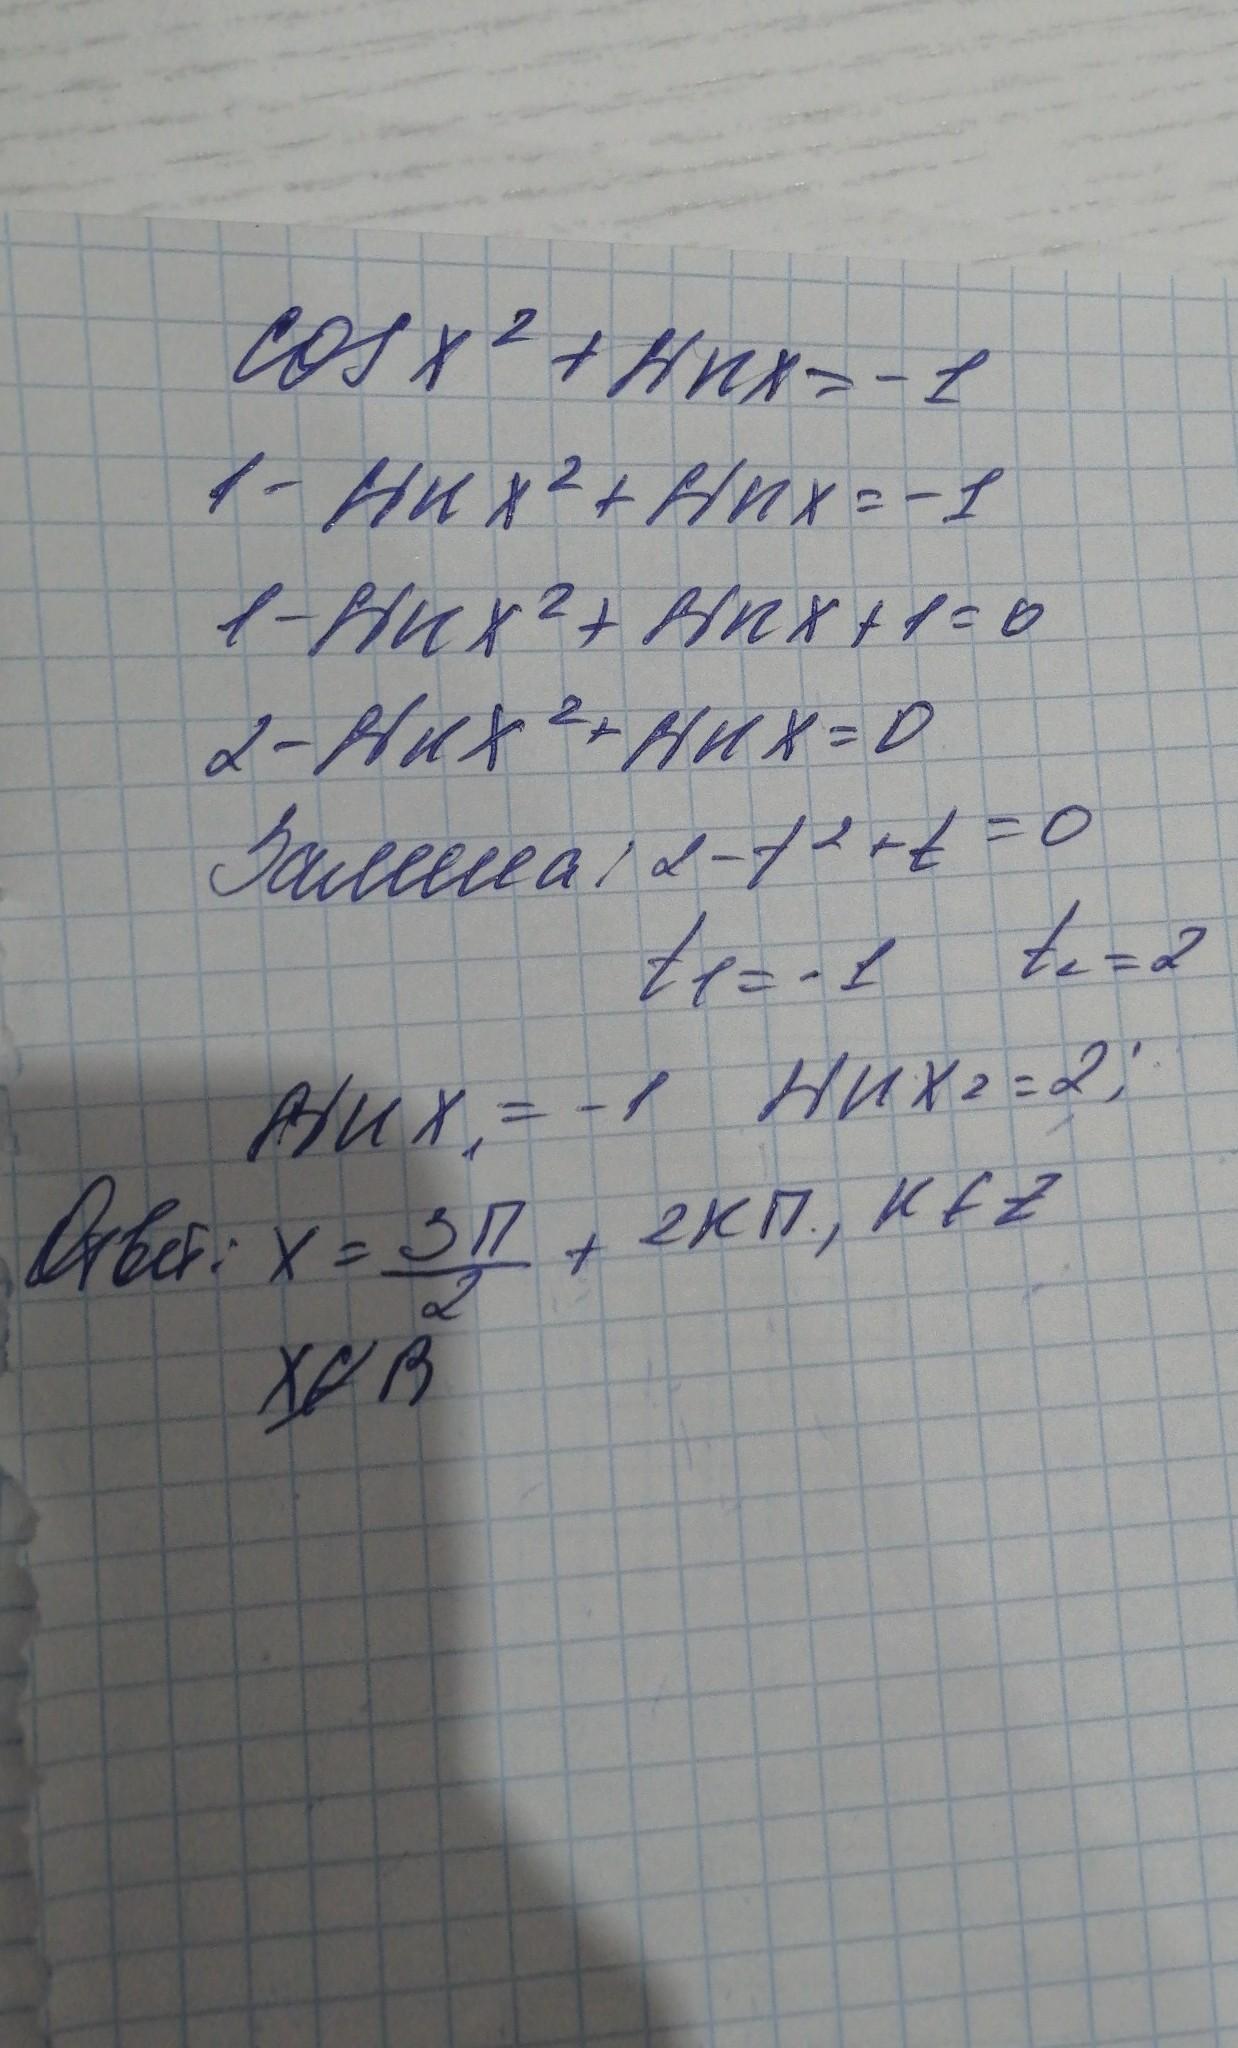 cos x² + sin x = -1
1 - sin x² + sin x = -1
1 - sin x² + sin x + 1 = 0
2 - sin x² + sin x = 0
Замена: 2 - t² + t = 0
t₁ = -1 t₂ = 2
sin x₁ = -1 sin x₂ = 2;
Ответ: x = 3π/2 + 2kπ, k ∈ Z
x ∉ R